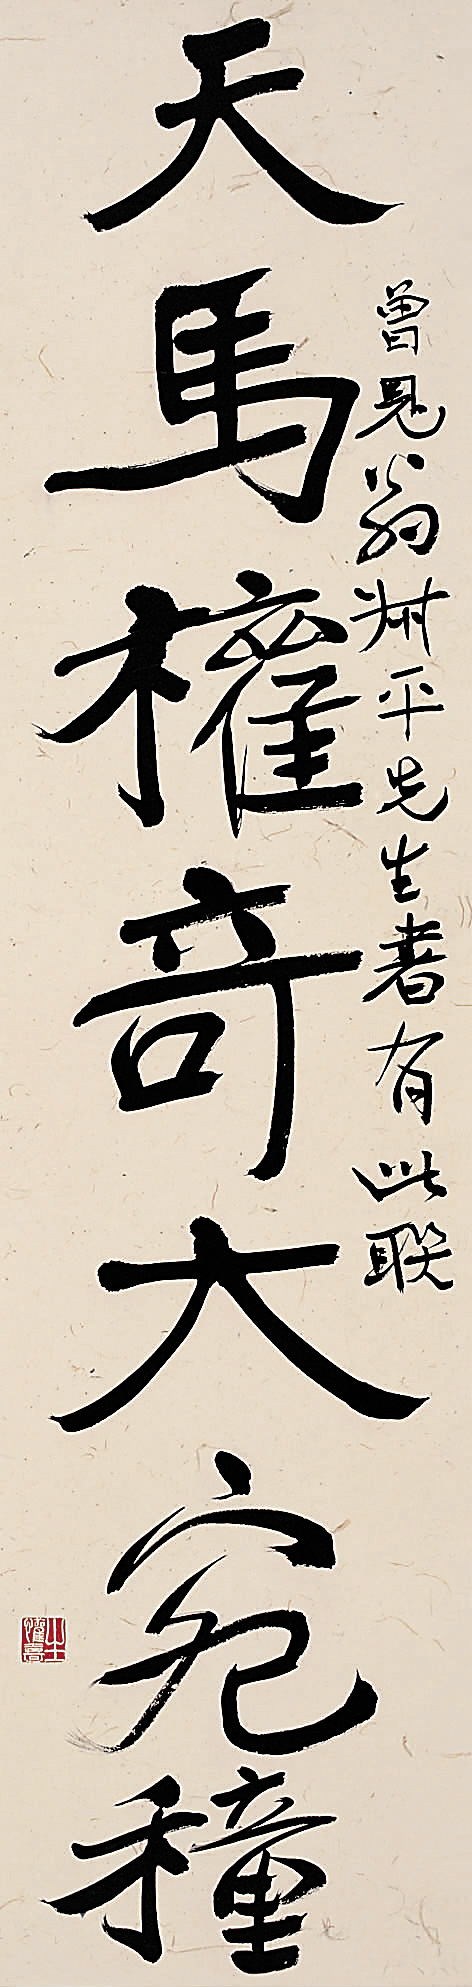 曾見翁叔平先生書有此聯
天馬權奇大宛穜